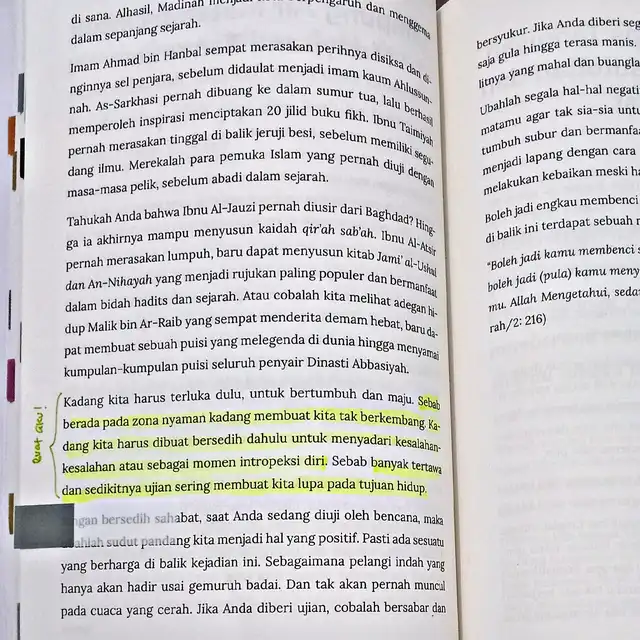 di sana. Alhasil, Madinah menjadi dan menggema
dalam sepanjang sejarah.
Imam Ahmad bin Hanbal sempat merasakan perihnya disiksa dan di-
nginnya sel penjara, sebelum didaulat menjadi imam kaum Ahlussun-
nah. As-Sarkhasi pernah dibuang ke dalam sumur tua, lalu berhasil
memperoleh inspirasi menciptakan 20 jilid buku fikh. Ibnu Taimiyah
pernah merasakan tinggal di balik jeruji besi, sebelum memiliki segu-
dang ilmu. Merekalah para pemuka Islam yang pernah diuji dengan
masa-masa pelik, sebelum abadi dalam sejarah.
Tahukah Anda bahwa Ibnu Al-Jauzi pernah diusir dari Baghdad? Hing-
ga ia akhirnya mampu menyusun kaidah qir'ah sab'ah. Ibnu Al-Atsir
pernah merasakan lumpuh, baru dapat menyusun kitab Jami' al-Ushul
dan An-Nihayah yang menjadi rujukan paling populer dan bermanfaat
dalam bidah hadits dan sejarah. Atau cobalah kita melihat adegan hi-
dup Malik bin Ar-Raib yang sempat menderita demam hebat, baru da-
pat membuat sebuah puisi yang melegenda di dunia hingga menyamai
kumpulan-kumpulan puisi seluruh penyair Dinasti Abbasiyah.
Kadang kita harus terluka dulu, untuk bertumbuh dan maju. Sebab
berada pada zona nyaman kadang membuat kita tak berkembang. Ka-
dang kita harus dibuat bersedih dahulu untuk menyadari kesalahan-
kesalahan atau sebagai momen intropeksi diri. Sebab banyak tertawa
dan sedikitnya ujian sering membuat kita lupa pada tujuan hidup.
bersedih sahabat, saat Anda sedang diuji oleh bencana, maka
sudut pandang kita menjadi hal yang positif. Pasti ada sesuatu
yang berharga di balik kejadian ini. Sebagaimana pelangi indah yang
hanya akan hadir usai gemuruh badai. Dan tak akan pernah muncul
pada cuaca yang cerah. Jika Anda diberi ujian, cobalah bersabar dan
bersyukur. Jika Anda diberi seg
saja gula hingga terasa manis.
litnya yang mahal dan buangla
Ubahlah segala hal-hal negati
matamu agar tak sia-sia untu
tumbuh subur dan bermanfa
menjadi lapang dengan cara
melakukan kebaikan meski ha
Boleh jadi engkau membenci
di balik ini terdapat sebuah
"Boleh jadi kamu membenci s
boleh jadi (pula) kamu meny
mu. Allah Mengetahui, seda
rah/2: 216)